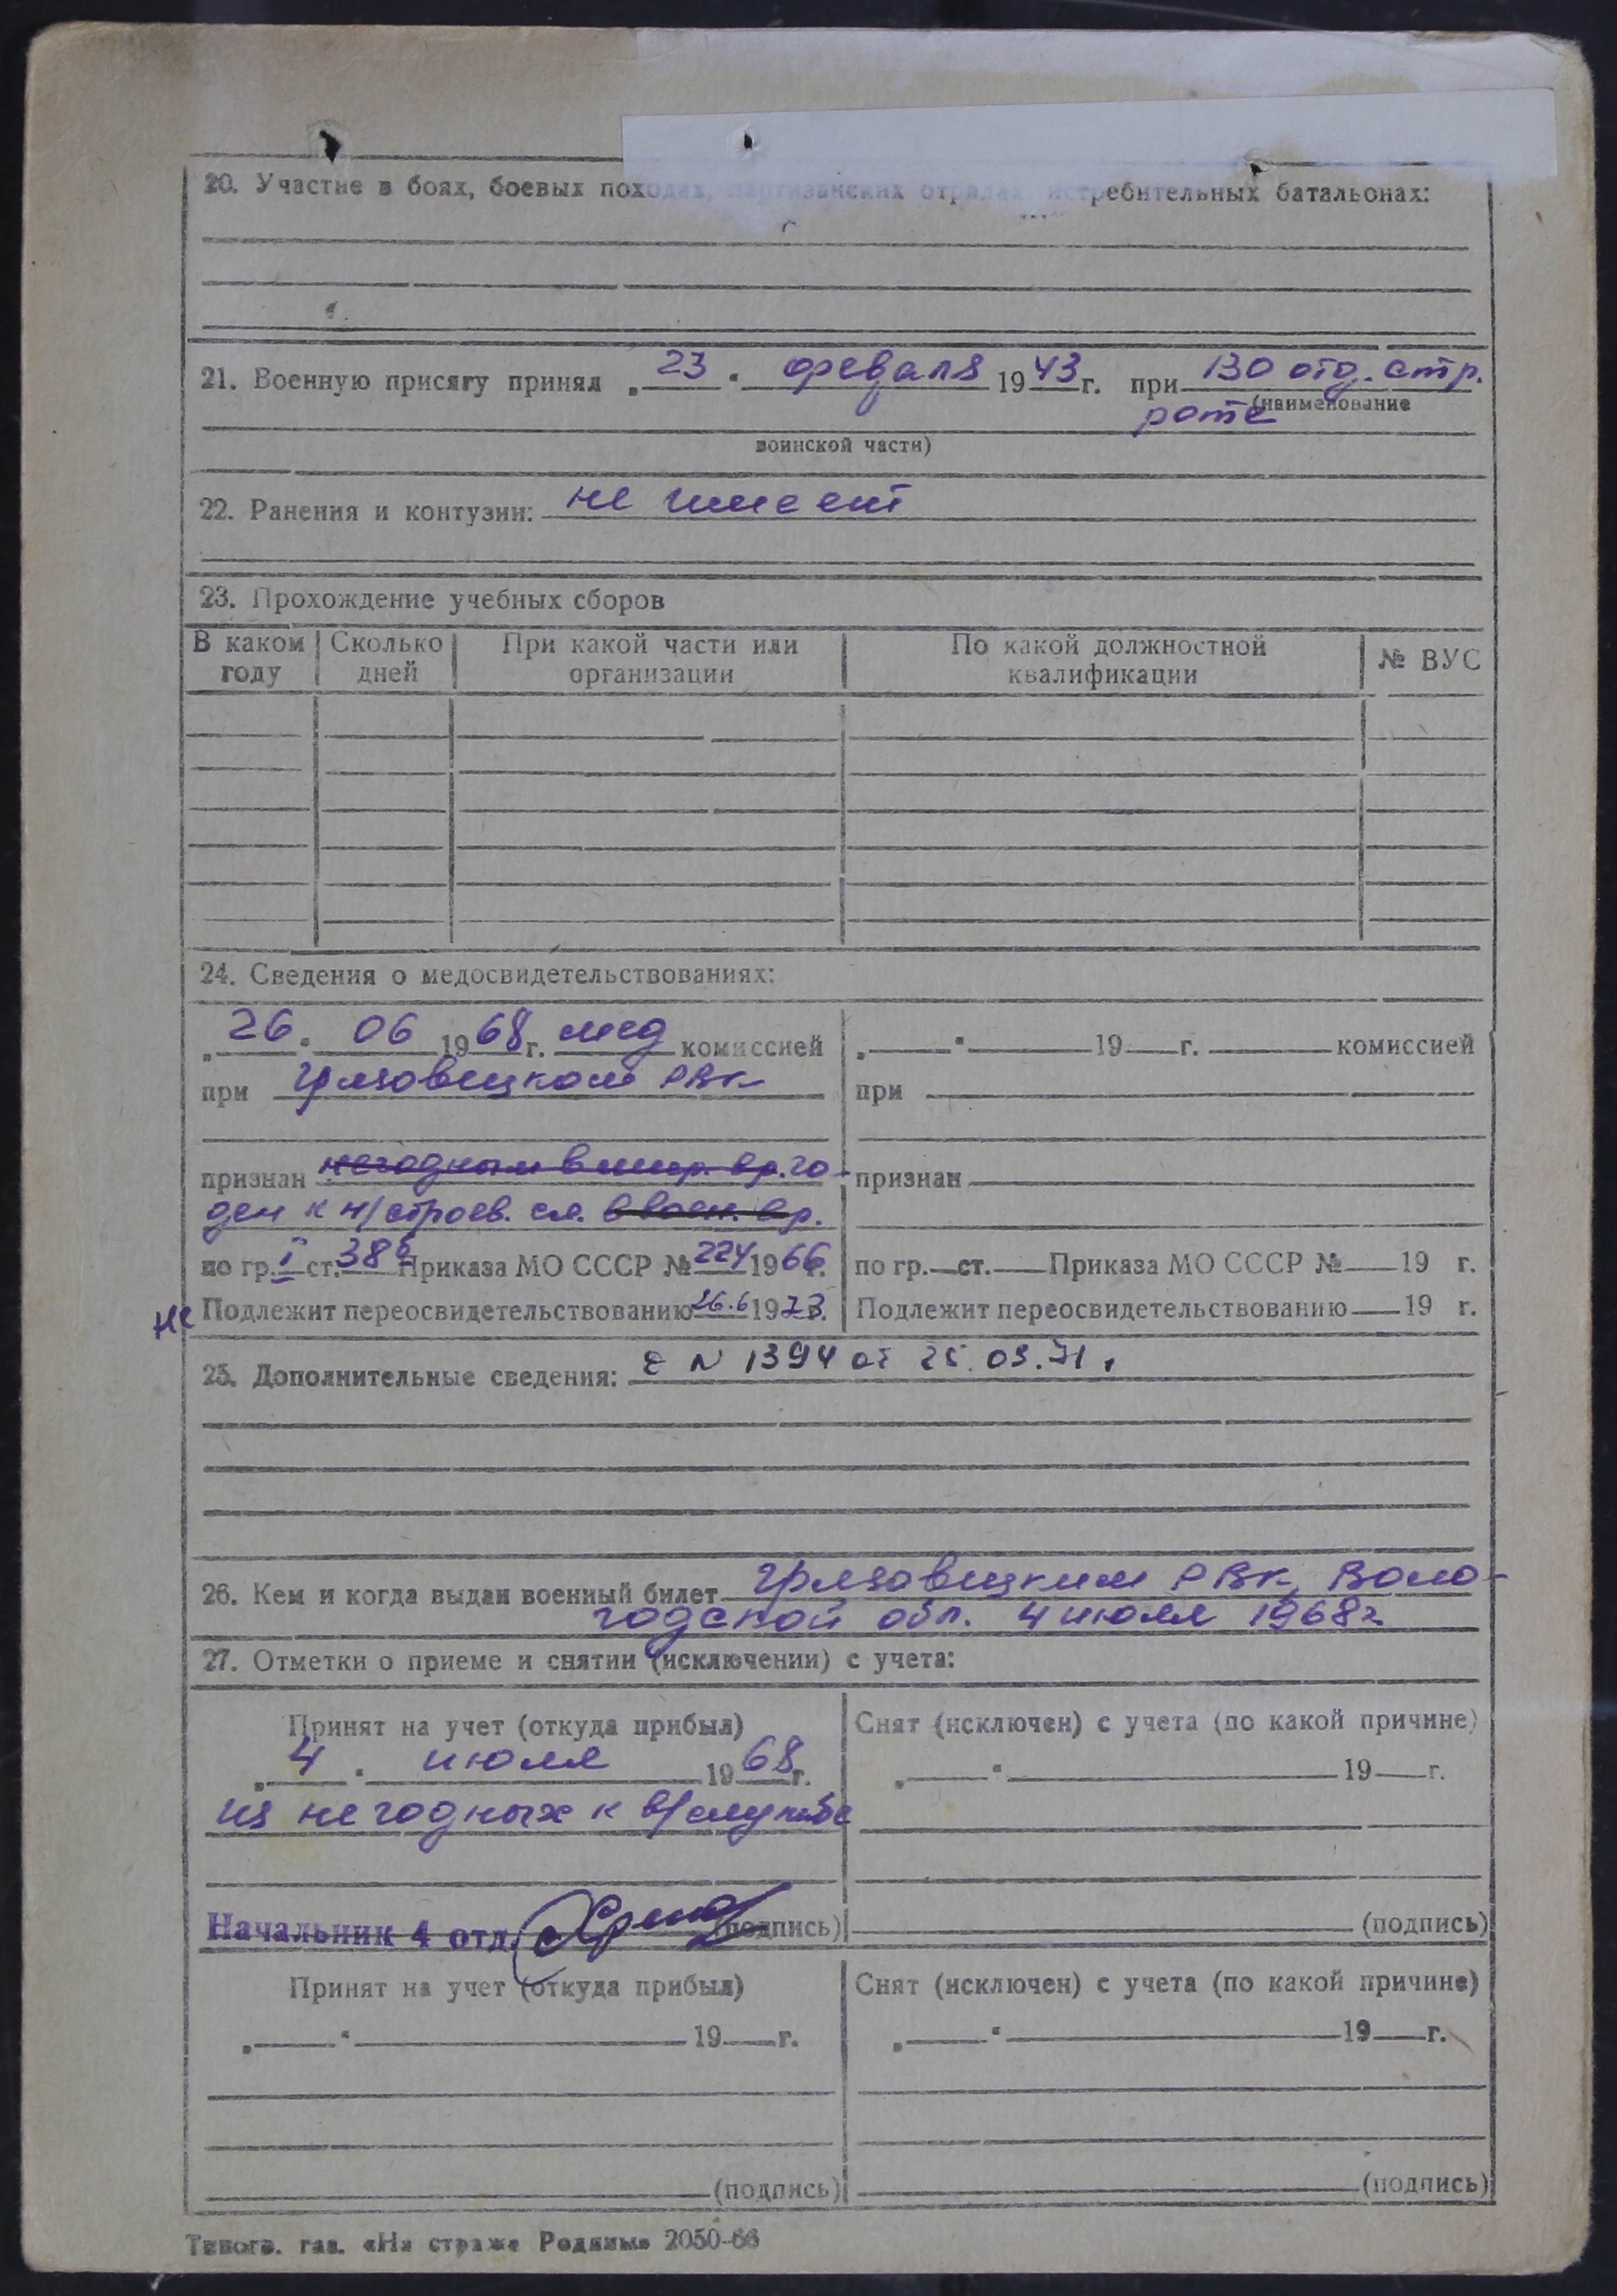 20. Участие в боях, боевых походах, партизанских отрядах, истребительных батальонах:
21. Военную присягу принял „23“ февраля 1943 г. при 130 отд. стр.
(наименование
роте
воинской части)
22. Ранения и контузии: не имеет
23. Прохождение учебных сборов
В каком году | Сколько дней | При какой части или организации | По какой должностной квалификации | № ВУС
24. Сведения о медосвидетельствованиях:
„26“ 06 1968 г. мед комиссией
при Грязовецком РВК
признан негодным в мир. вр. го-
ден к н/строев. сл. в воен. вр.
по гр. I ст. 38б Приказа МО СССР № 224 1966 г.
не Подлежит переосвидетельствованию 26.6 1973 г.
„ “ 19 г. комиссией
при
признан
по гр. ст. Приказа МО СССР № 19 г.
Подлежит переосвидетельствованию 19 г.
25. Дополнительные сведения: N 1394 от 25.03.71
26. Кем и когда выдан военный билет Грязовецким РВК, Воло-
годской обл. 4 июля 1968г
27. Отметки о приеме и снятии (исключении) с учета:
Принят на учет (откуда прибыл)
„4“ июля 1968 г.
из негодных к в/службе
Начальник 4 отд. (подпись)
Снят (исключен) с учета (по какой причине)
„ “ 19 г.
(подпись)
Принят на учет (откуда прибыл)
„ “ 19 г.
(подпись)
Снят (исключен) с учета (по какой причине)
„ “ 19 г.
(подпись)
Типогр. газ. «На страже Родины» 2050-66